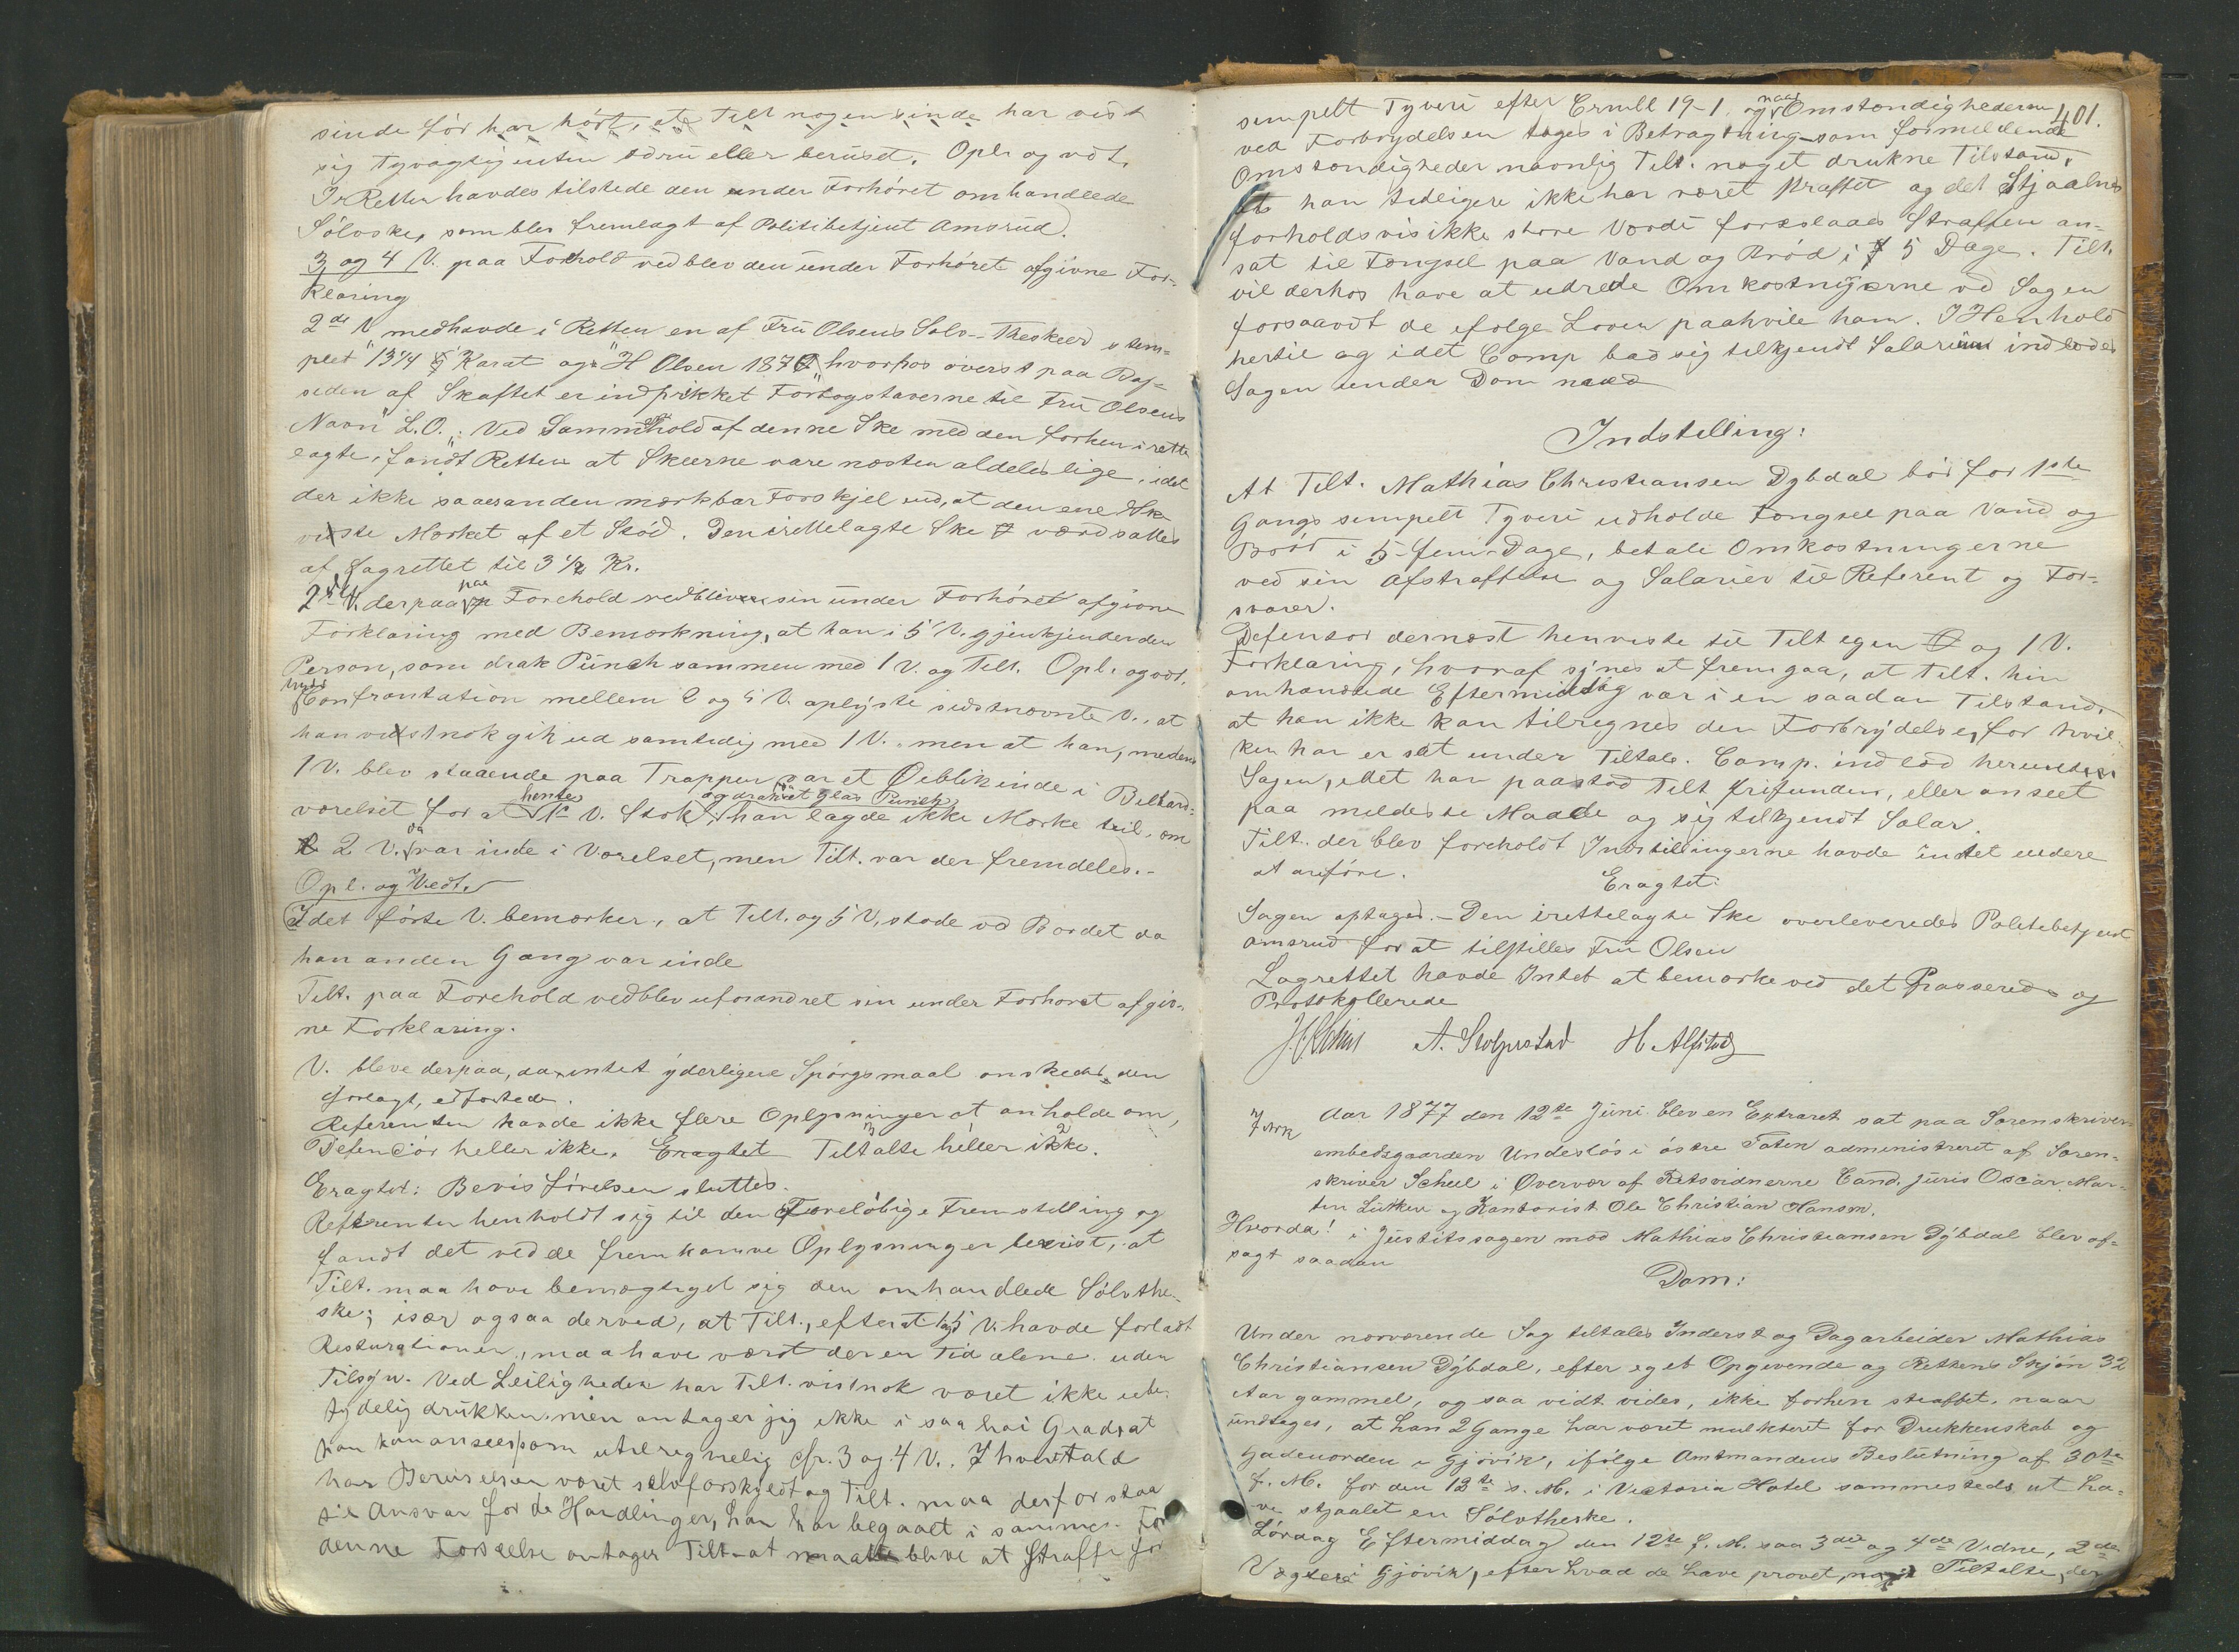 sinde för har hört, at Tilt nogensinde har vist
sig tyvagtig enten ædru eller beruset. Opl. og vdt.
I Retten havdes tilstede den under Forhöret omhandlede
Sölvske, som blev fremlagt af Politibetjent Amsrud.
3 og 4 V. paa Forhold vedblev den under Forhöret afgivne For-
klaring
2de V medhavde i Retten en af Fru Olsens Sölv-Theskeer stem-
plet "13¼ Karat og "H Olsen 187 hvorhos överst paa Bag-
siden af Skaftet er indprikket Forbogstaverne til Fru Olsens
Navn "L.O." Ved Sammenhold af denne Ske med den forhen i rette
lagte, fandt Retten at Skeerne vare næsten aldeles lige, idet
der ikke saaes anden mærkbar Forskjel end, at den ene Ske
viste Mærket af et Stöd. Den irettelagte Ske værdsattes
af Lagrettet til 3½ Kr.
2det V. derpaa paa Forehold vedblev sin under Forhöret afgivne
Forklaring med Bemærkning, at han i 5 V. gjenkjender den
Person, som drak Punch sammen med 1 V. og Tilt. Opl. og vdt.
Confrontation mellem 2 og 5 V. oplyste sidstnævnte V., at
han vistnok gik ud samtidig med 1 V. men at han, medens
1 V. blev staaende paa Trappen var et Öieblik inde i Billard-
værelset for at hente 1ste V. Stok og drak et Glas Punch; han lagde ikke Mærke til, om
2 V. da var inde i Værelset, men Tilt. var der fremdeles.-
Opl. og Vedt.
Idet förste V. bemærker, at Tilt. og 5 V. stode ved Bordet da
han anden Gang var inde
Tilt. paa Forehold vedblev uforandret sin under Forhöret afgiv-
ne Forklaring.
V. bleve derpaa, da intet yderligere Spörgsmaal önskedes dem
forelagt, edfæstede.
Referenten havde ikke flere Oplysninger at anholde om,
Defensor heller ikke. Eragtet Tiltalte heller ikke.
Eragtet: Bevis Förelsen sluttes.
Referenten henholdt sig til den Foreløbige Fremstilling og
fandt det ved de fremkomne Oplysninger bevist, at
Tilt. maa have bemægtiget sig den omhandlede Sölvthe-
ske; især ogsaa derved, at Tilt., efterat 1 og 5 V. havde forladt
Resturationen, maa have været der en Tid alene uden
Tilsyn. Ved Leiligheden har Tilt. vistnok været ikke ube-
tydelig drukken, men antager jeg ikke i saa höi Grad, at
han kan ansees som utilregnelig cfr. 3 og 4 V. I hvert Fald
har Beruselsen været selvforskyldt og Tilt. maa derfor staa
til Ansvar for de Handlinger, han har begaaet i samme. For
denne Forseelse antages Tilt at maatte blive at straffe for
401.
simpelt Tyveri efter Crmll 19-1. og naar Omstændighederne
ved Forbrydelsen tages i Betragtning som formildende
Omstændigheder navnlig Tilt. noget drukne Tilstand,
at han tidligere ikke har været straffet og det Stjaalnes
forholdsvis ikke store Værdi foreslaaes Straffen an-
sat til Fængsel paa Vand og Bröd i 5 Dage. Tilt.
vil derhos have at udrede Omkostningerne ved Sagen
forsaavidt de ifölge Loven paahvile ham. I Henhold
hertil og idet Comp bad sig tilkjendt Salarium indlodes
Sagen under Dom med
Indstilling:
At Tilt. Mathias Christiansen Dybdal bör for 1ste
Gangs simpelt Tyveri udholde Fængsel paa Vand og
Bröd i 5-fem-Dage, betale Omkostningerne
ved sin Afstraffelse og Salarier til Referent og For-
svarer.
Defensor dernæst henviste til Tilt egen og 1 V.
Forklaring, hvoraf synes at fremgaa, at Tilt. hin
omhandlede Eftermiddag var i en saadan Tilstand,
at han ikke kan tilregnes den Forbrydelse, for hvil-
ken han er sat under Tiltale. Comp. indlod herunder
Sagen, idet han paastod Tilt frifunden, eller anseet
paa mildeste Maade og sig tilkjendt Salar.
Tilt. der blev foreholdt Indstillingerne havde intet videre
at anföre.
Eragtet:
Sagen optages. - Den irettelagte Ske overleveredes Politibetjent
Amsrud for at tilstilles Fru Olsen
Lagrettet havde Intet at bemærke ved det Passerede og
Protokollerede
A. Stolpestad H. Alfstad
Aar 1877 den 12te Juni blev en Extraret sat paa Sorenskriver-
embedsgaarden Undeslös i östre Toten administreret af Soren-
skriver Scheel i Overvær af Retsvidnerne Cand. juris Oscar Mar-
tin Lütken og Kontorist Ole Christian Hansen.
Hvorda! i Justitssagen mod Mathias Christiansen Dybdal blev af-
sagt saadan
Dom:
Under nærværende Sag tiltales Inderst og Dagarbeider Mathias
Christiansen Dybdal, efter eget Opgivende og Rettens Skjön 32
Aar gammel, og saa vidt vides, ikke forhen straffet, naar
undtages, at han 2 Gange har været mulkteret for Drukkenskab og
Gadeuorden i Gjövik, ifölge Amtmandens Beslutning af 30te
f. M. for den 12te s. M. i Victoria Hotel sammesteds at ha-
ve stjaalet en Sölvtheske.
Lördag Eftermiddag den 12te f. M. saa 3die og 4de Vidne, 2de
Vægtere i Gjövik, efter hvad de have provet, Tiltalte, der